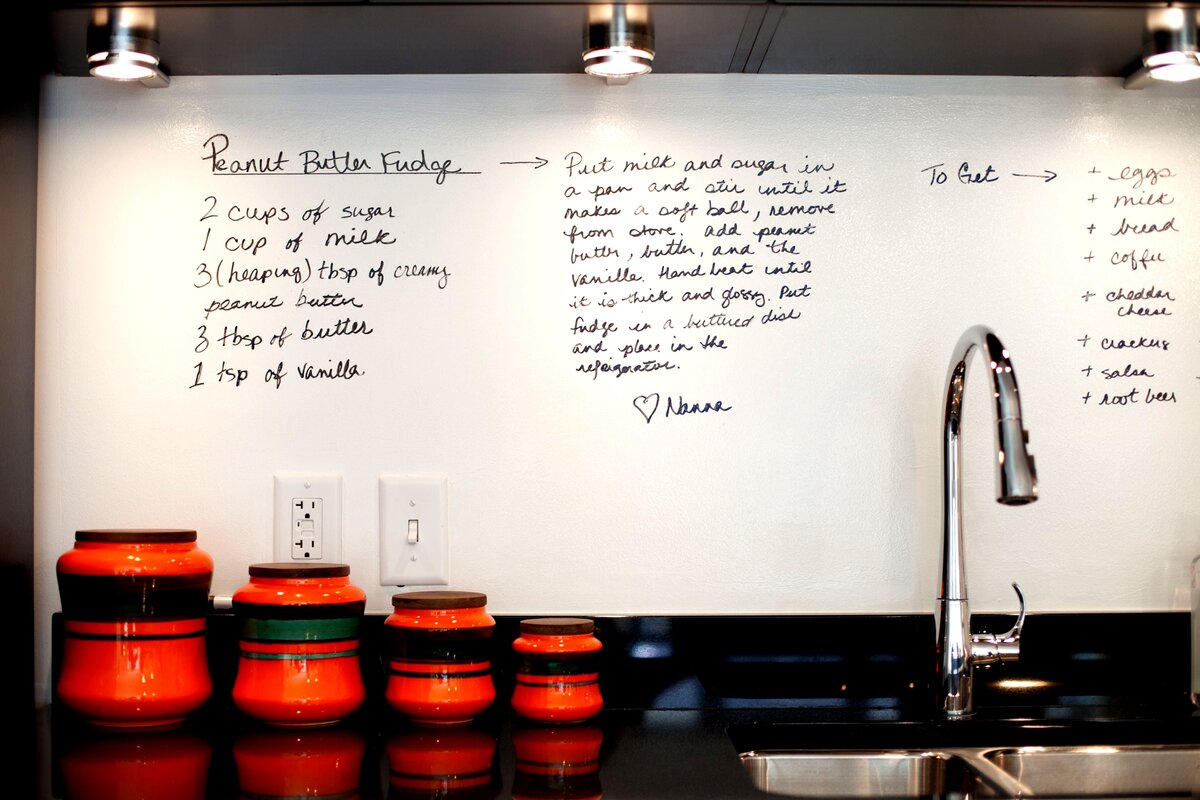 Peanut Butter Fudge →
2 cups of sugar
1 cup of milk
3 (heaping) tbsp of creamy
peanut butter
3 tbsp of butter
1 tsp of vanilla.
Put milk and sugar in
a pan and stir until it
makes a soft ball, remove
from stove. Add peanut
butter, butter, and the
vanilla. Hand beat until
it is thick and glossy. Put
fudge in a buttered dish
and place in the
refrigerator.
♡ Nanna
To Get →
+ eggs
+ milk
+ bread
+ coffee
+ cheddar
cheese
+ crackers
+ salsa
+ root beer